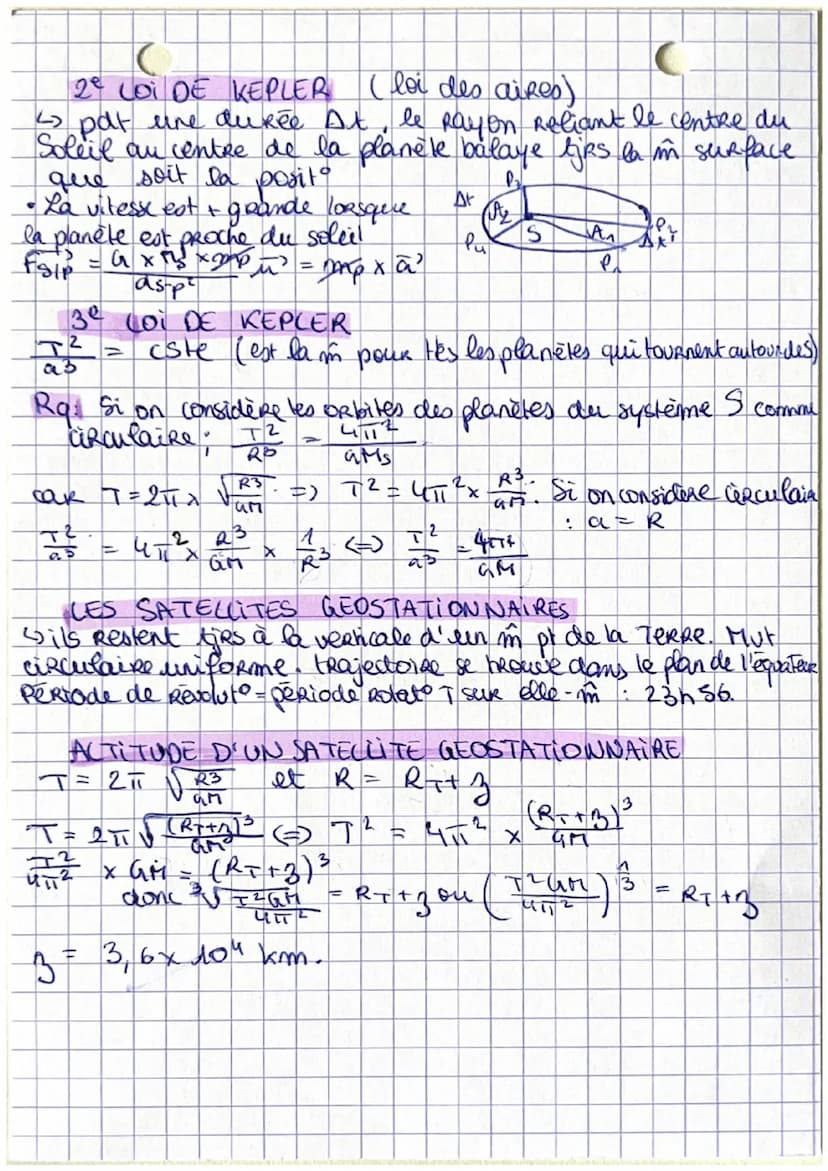 2e LOI DE KEPLER (loi des aires)
↳ pdt une durée Δt, le rayon reliant le centre du
Soleil au centre de la planète balaye tjrs la m̂ surface
que soit la posit°
• La vitesse est + grande lorsque
la planète est proche du soleil
Δt P3 A2 P4 S A1 P2 Δt P1
F⃗S/P = G × ms × mp / ds-p² u⃗ = mp × a⃗
3e LOI DE KEPLER
T²/a³ = cste (est la m̂ pour ttes les planètes qui tournent autour de S)
Rq: Si on considère les orbites des planètes du système S comme
circulaire ; T²/R³ = 4π²/GMs
car T = 2π × √(R³/GM) => T² = 4π² × R³/GM. Si on considère circulair
: a = R
T²/a³ = 4π² × R³/GM × 1/R³ <=> T²/a³ = 4π²/GM
LES SATELLITES GEOSTATIONNAIRES
↳ ils restent tjrs à la verticale d'un m̂ pt de la TERRE. Mvt
circulaire uniforme. trajectoire se trouve dans le plan de l'équateur
Période de révolut° = période rotat° T sur elle-m̂ : 23h56.
ALTITUDE D'UN SATELLITE GEOSTATIONNAIRE
T = 2π √(R³/GM) et R = RT + z
T = 2π √((RT+z)³/GM) <=> T² = 4π² × (RT+z)³/GM
T²/4π² × GM = (RT+z)³
donc ³√(T²GM/4π²) = RT + z ou (T²GM/4π²)^(1/3) = RT + z
z = 3,6 × 10⁴ km.